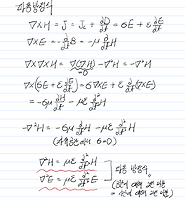 파동방정식
∇×H = J = Jc + ∂D/∂t = 6E + ε ∂E/∂t
∇×E = -∂/∂t B = -μ ∂/∂t H
∇×∇×H = ∇(∇·H) - ∇²H = -∇²H
=0
∇×(6E + ε ∂E/∂t) = 6∇×E + ε ∂/∂t (∇×E)
= -6μ ∂H/∂t - με ∂²/∂t² H
-∇²H = -6μ ∂/∂t H - με ∂²/∂t² H
6=0)
∇²H = με ∂²/∂t² H
∇²E = με ∂²/∂t² E
파동 방정식.